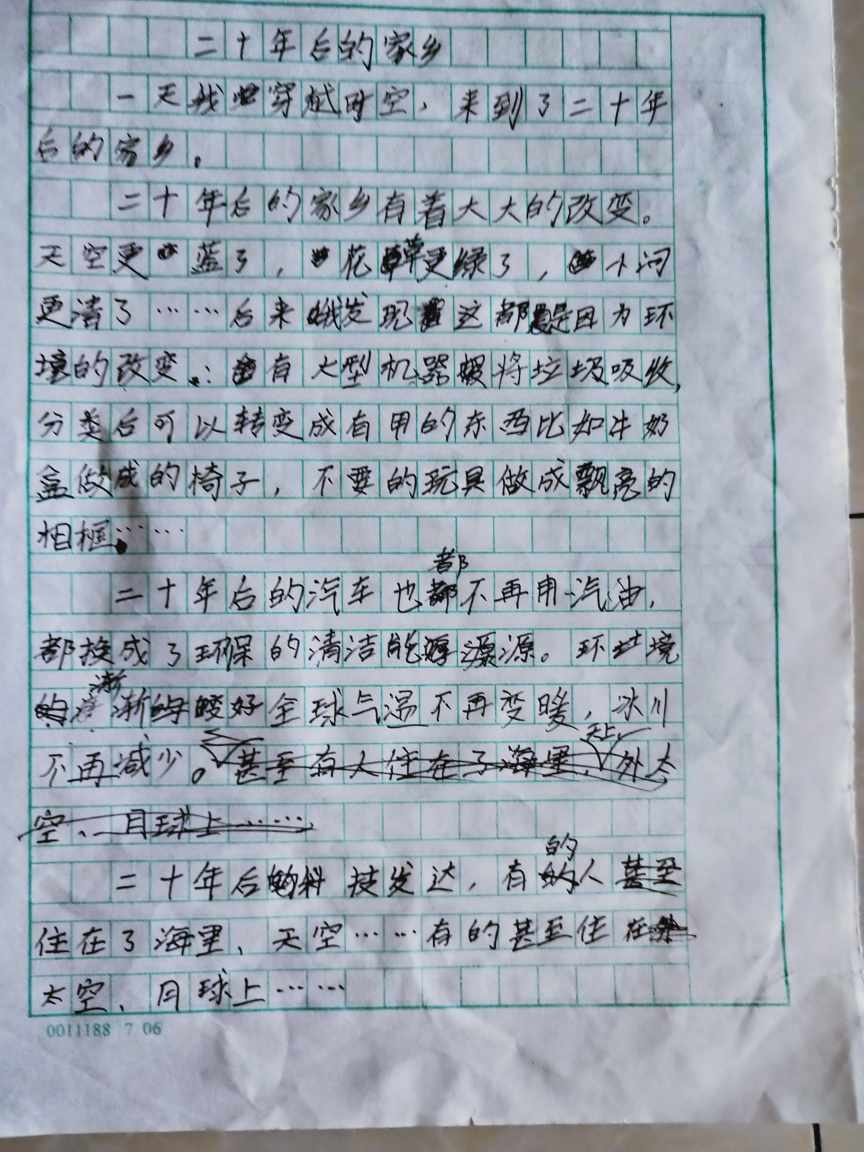 二十年后的家乡
一天我穿梭时空，来到了二十年
后的家乡。
二十年后的家乡有着大大的改变。
天空更蓝了，花草更绿了，小河
更清了……后来我发现这都是因为环
境的改变：有大型机器将垃圾吸收，
分类后可以转变成有用的东西比如牛奶
盒做成的椅子，不要的玩具做成飘亮的
相框……
二十年后的汽车也都不再用汽油，
都换成了环保的清洁能源。环境
渐渐变好全球气温不再变暖，冰川
不再减少。甚至有人住在了海里、天上、外太
空、月球上……
二十年后的科技发达，有的人甚至
住在了海里、天空……有的甚至住在
太空、月球上……
0011188 7 06